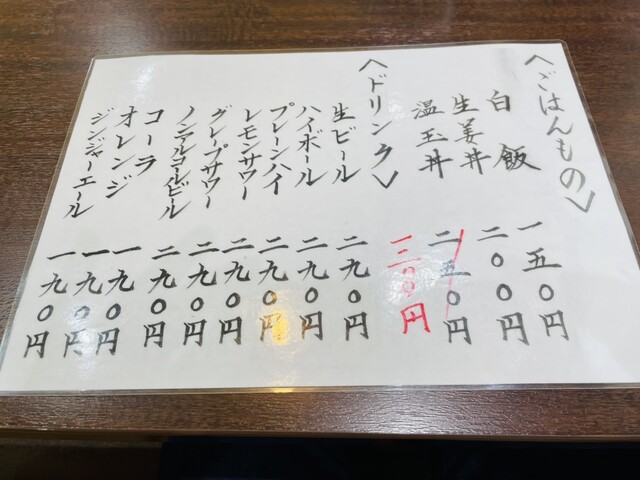 〈ごはんもの〉
白飯 一五〇円
生姜丼 二〇〇円
温玉丼 二五〇円
三〇〇円
〈ドリンク〉
生ビール 二九〇円
ハイボール 二九〇円
プレーンハイ 二九〇円
レモンサワー 二九〇円
グレープサワー 二九〇円
ノンアルコールビール 二九〇円
コーラ 一九〇円
オレンジ 一九〇円
ジンジャーエール 一九〇円